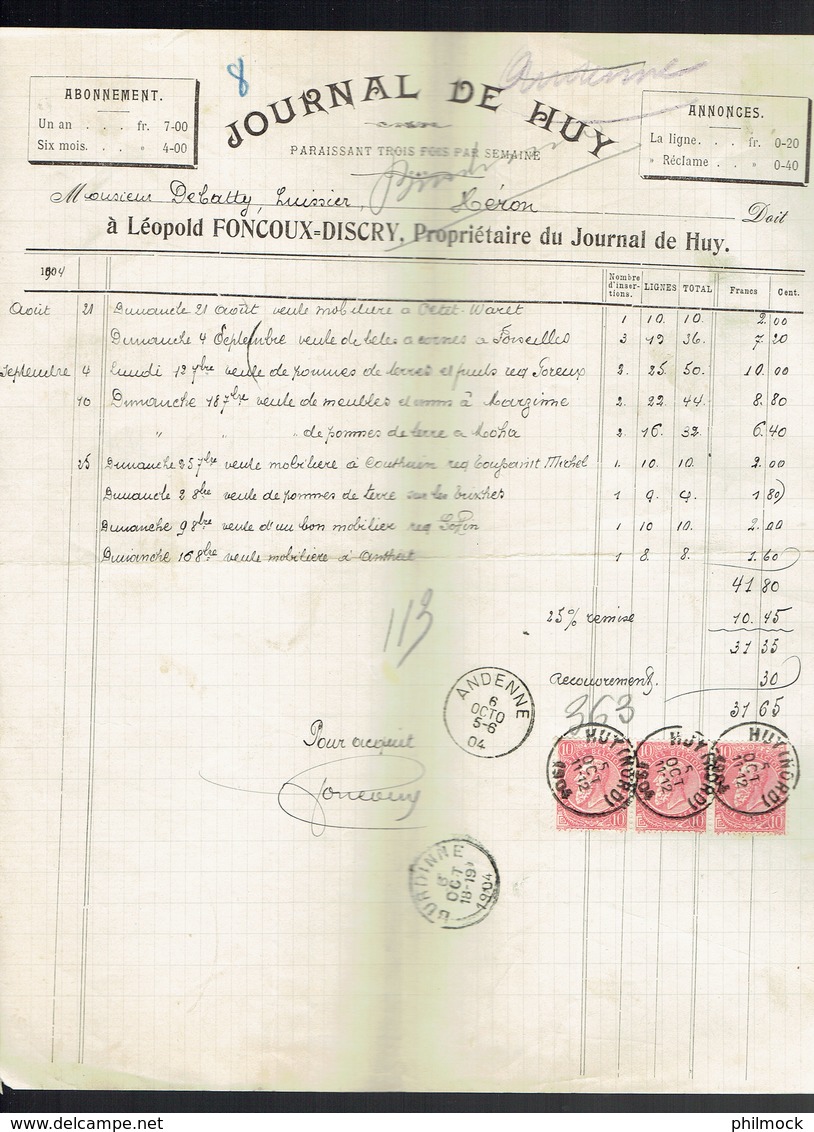 8
Andenne
ABONNEMENT.
Un an . . . fr. 7-00
Six mois. . . » 4-00
JOURNAL DE HUY
PARAISSANT TROIS FOIS PAR SEMAINE
ANNONCES.
La ligne. . . fr. 0-20
» Réclame . . » 0-40
Monsieur Debatty, huissier, Héron Doit
à Léopold FONCOUX=DISCRY, Propriétaire du Journal de Huy.
1904 Nombre d'insertions. LIGNES TOTAL Francs Cent.
Août 21 Dimanche 21 août vente mobilière à Petit-Waret 1 10. 10. 2.00
Dimanche 4 Septembre vente de bêtes à cornes à Forseilles 3 12 36. 7 20
Septembre 4 Lundi 12 7bre vente de pommes de terres et fruits req Foreux 2. 25. 50. 10 00
10 Dimanche 18 7bre vente de meubles et à Marginne 2. 22. 44. 8. 80
" " " de pommes de terre à Moha 2. 16. 32. 6. 40
25 Dimanche 25 7bre vente mobilière à Couthuin req Toussaint Michel 1. 10. 10. 2 00
Dimanche 2 8bre vente de pommes de terre sur les 1 9. 9. 1 80
Dimanche 9 8bre vente d'un bon mobilier req 1 10 10. 2.00
Dimanche 16 8bre vente mobilière à Antheit 1 8. 8. 1.60
41 80
25% remise 10. 45
31 35
Recouvrement. 30
31 65
113
363
ANDENNE
6
OCTO
5-6
04
Pour acquit
Foncoux
HUY(NORD)
5
OCT
11-12
1904
HUY(NORD)
5
OCT
11-12
1904
HUY(NORD)
5
OCT
11-12
1904
10 10
10 10
10 10
BURDINNE
6
OCT
18-19
1904
philmock